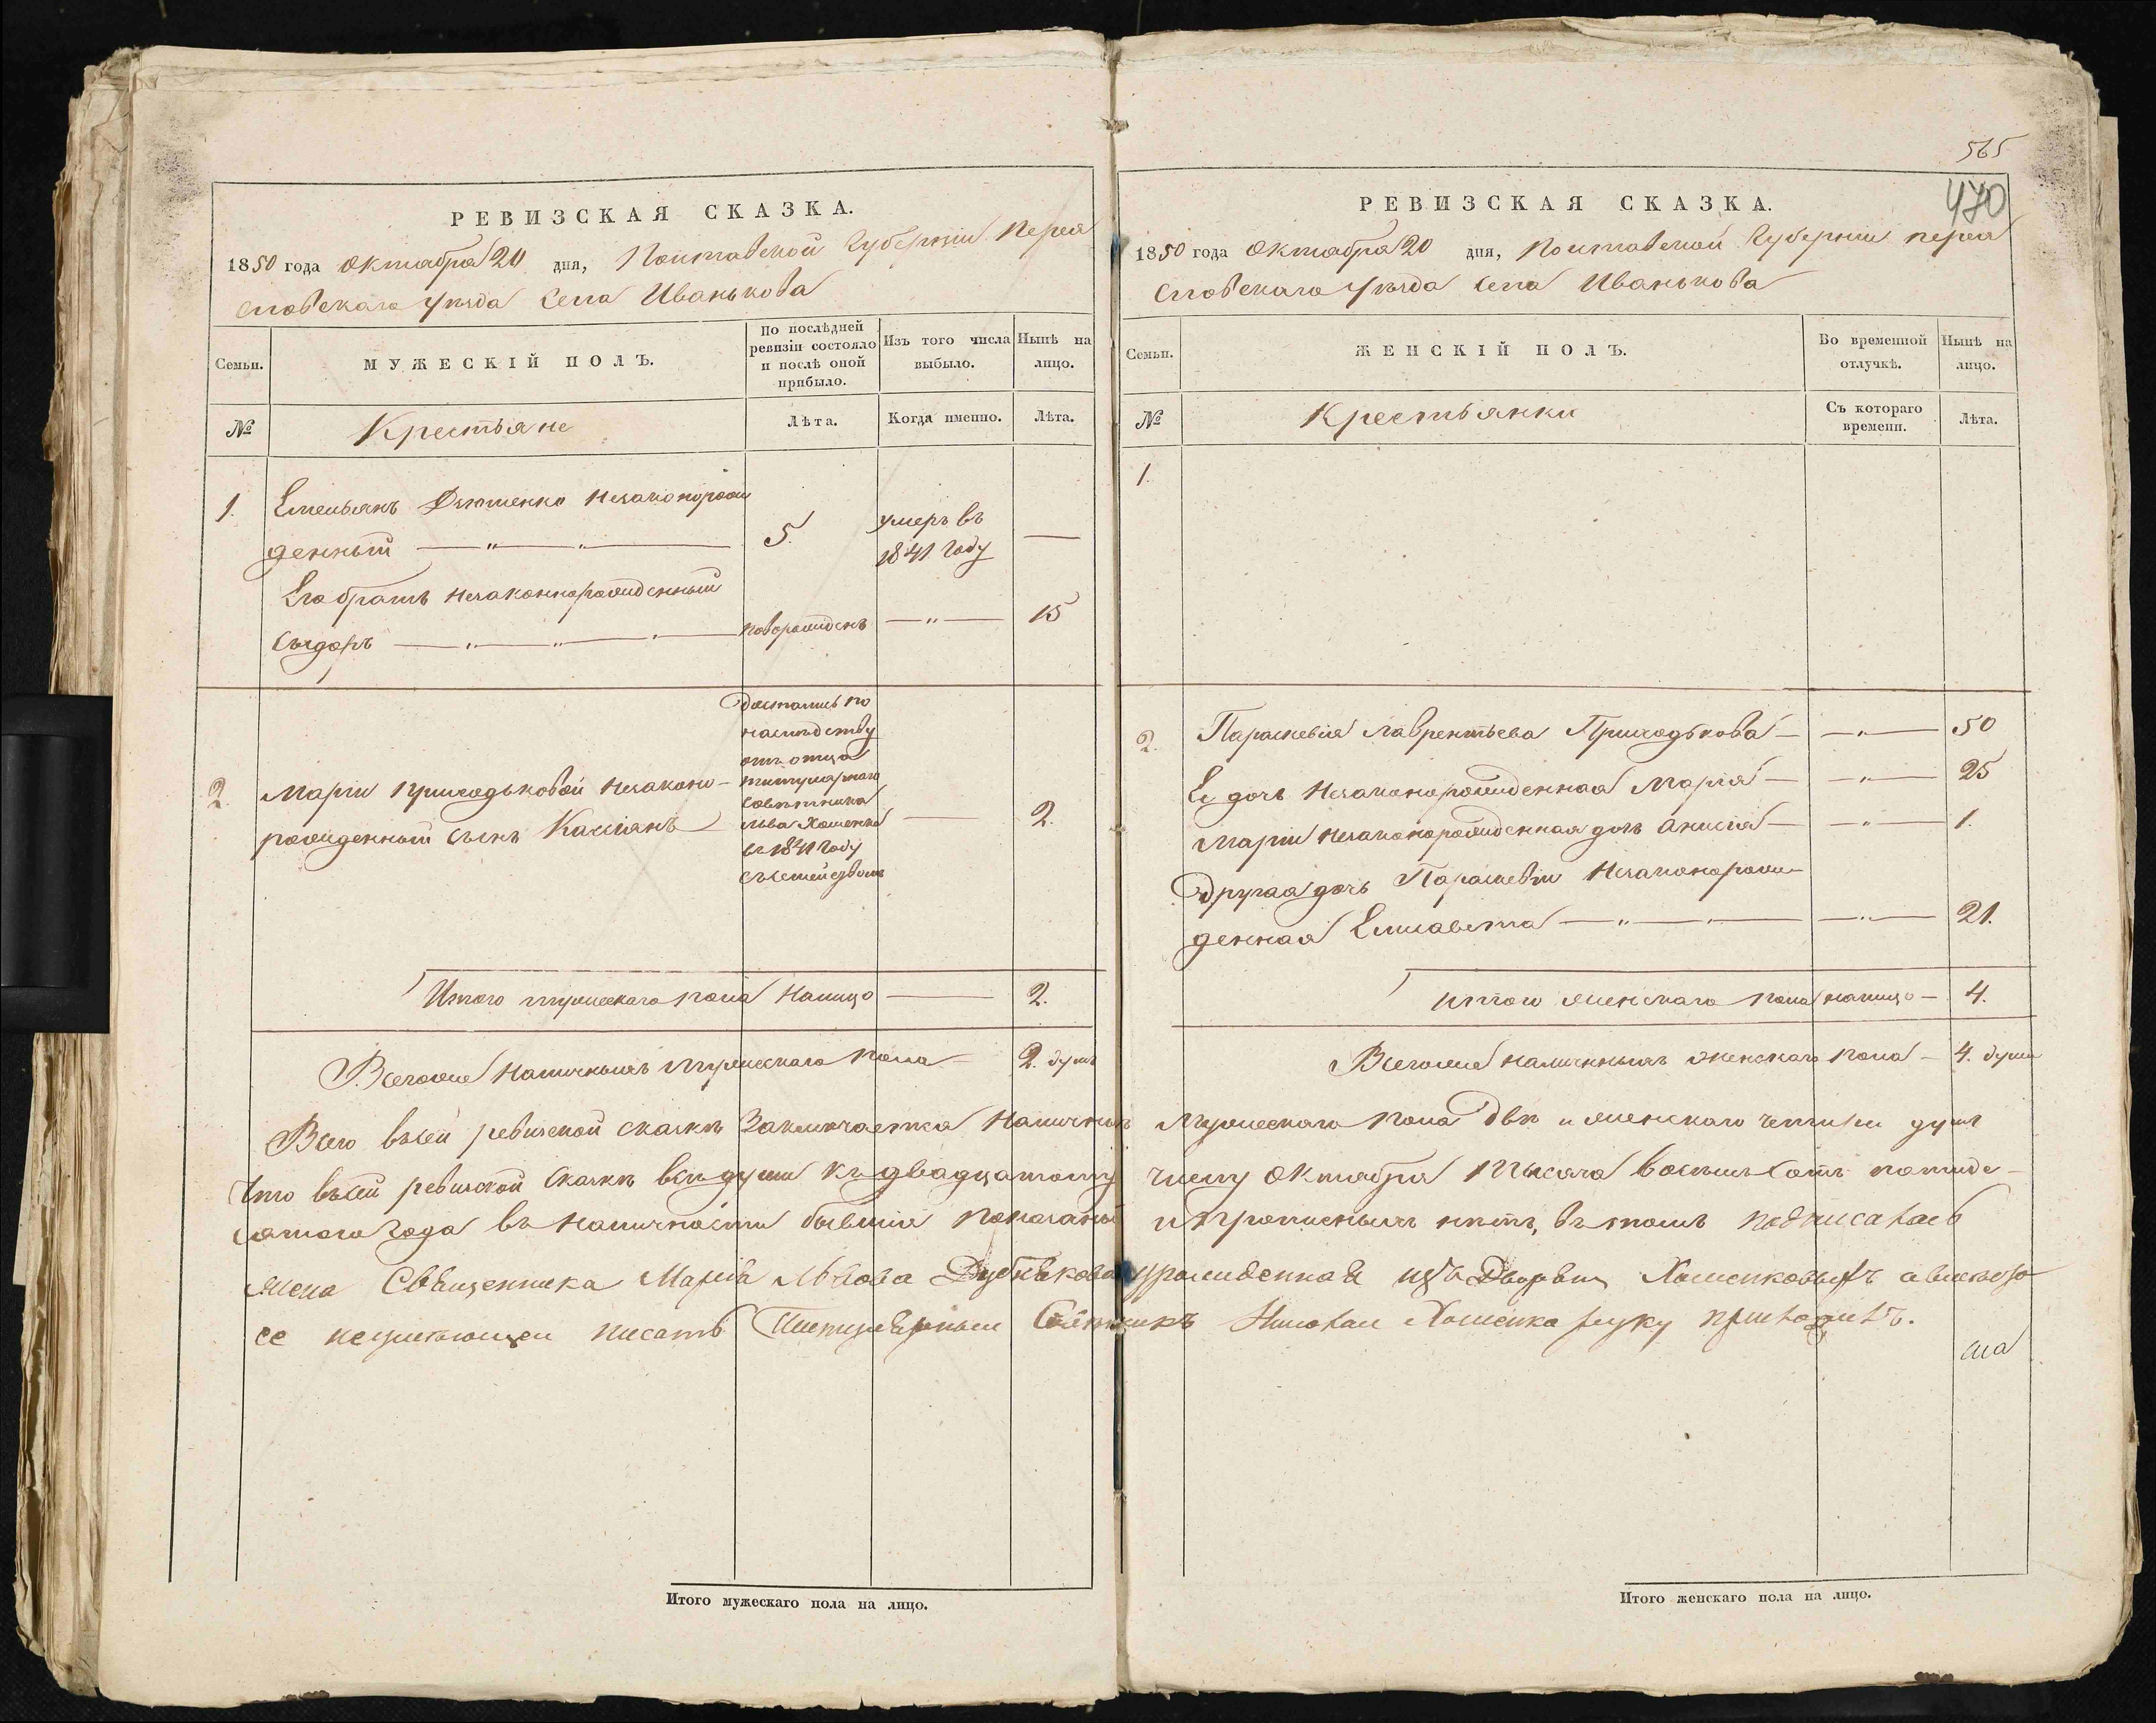 РЕВИЗСКАЯ СКАЗКА.
1850 года Октября 20 дня, Полтавской Губерніи Перея
славскаго уѣзда Села Иванькова
Семьи.
МУЖЕСКІЙ ПОЛЪ.
По послѣдней
ревизіи состояло
и послѣ оной
прибыло.
Изъ того числа
выбыло.
Нынѣ на
лицо.
№
Крестьяне
Лѣта.
Когда именно.
Лѣта.
1. Емельянъ незаконорож
денный 5. умеръ въ
1841 году
Его братъ незаконнорожденный
Сыдоръ новорожденъ 15
Достались по
наслѣдству
отъ отца
титулярнаго
совѣтника
Льва Хоменка
въ 1841 году
2. Маріи Приходьковой незаконо-
рожденный сынъ Касіянъ 2.
Итого мужескаго пола налицо 2.
Всегоже наличныхъ мужескаго пола 2. душъ
565
470
РЕВИЗСКАЯ СКАЗКА.
1850 года Октября 20 дня, Полтавской Губерніи перея
славскаго уѣзда села Иванькова
Семьи.
ЖЕНСКІЙ ПОЛЪ.
Во временной
отлучкѣ.
Нынѣ на
лицо.
№
Крестьянки
Съ котораго
времени.
Лѣта.
1.
2. Параскевія Лаврентьева Приходькова 50
Ее дочь незаконорожденная Марія 25
Маріи незаконорожденная дочь Анисія 1.
Другая дочь Параскевіи незаконорож-
денная Елисавета 21.
итого женскаго пола налицо 4.
Всегоже наличныхъ женскаго пола 4. души
Всего въсей ревизской сказкѣ Заключается Наличныхъ Мужескаго пола двѣ и женскаго четыри душъ
Что въсей ревизской Сказкѣ всѣ души къ двадцатому числу Октября тысяча восемь сотъ пятиде-
сятаго года въ наличности бывшія показаны и прописныхъ нѣтъ, въ томъ подписалась
жена Священника Марія Львова урожденная изъ Дворянъ Хоменковыхъ а вместо
ее неумеющей писать Титулярный Советникъ Николай Хоменко руку приложилъ.
Итого мужескаго пола на лицо.
Итого женскаго пола на лицо.